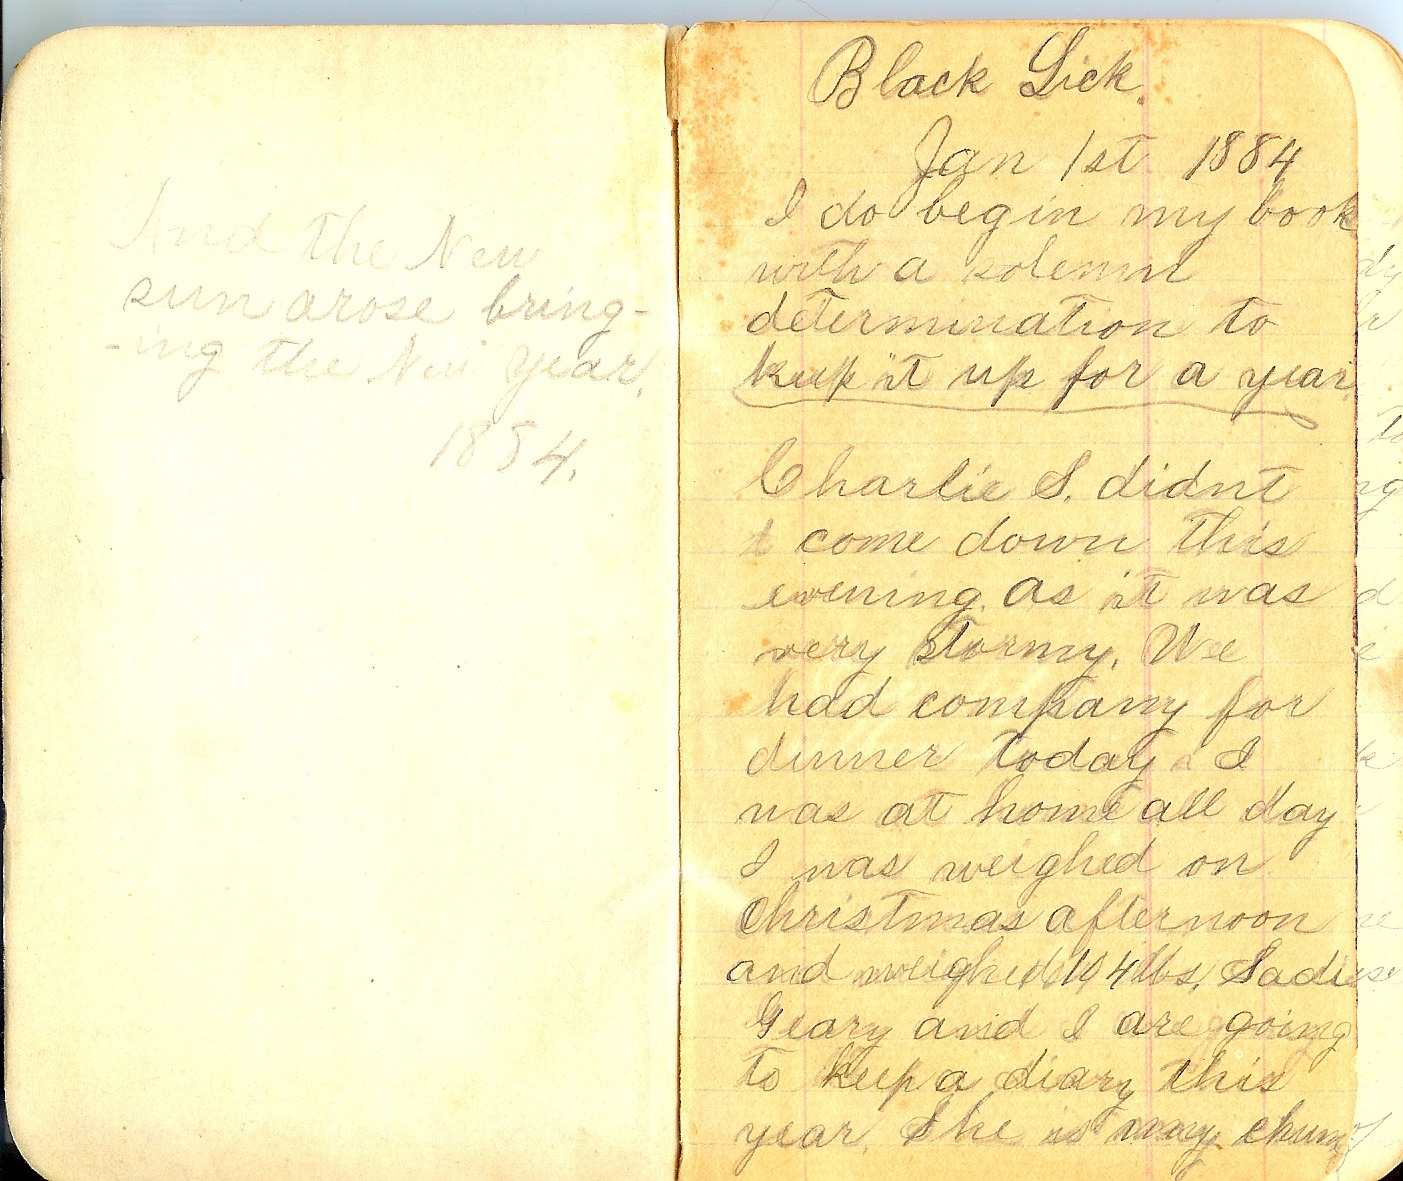 And the New
sun arose bring-
-ing the New Year.
1884.
Black Lick.
Jan 1st 1884
I do begin my book
with a solemn
determination to
keep it up for a year.
Charlie S. didnt
come down this
evening. as it was
very stormy. We
had company for
dinner today. I
was at home all day
I was weighed on
Christmas afternoon
and weighed 104 lbs. Sadie
Geary and I are going
to keep a diary this
year. She is my chum